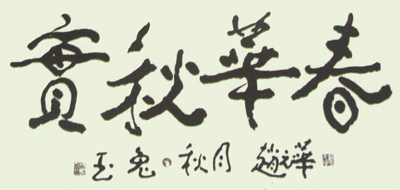 春華秋實
玉兔 秋月 趙 華